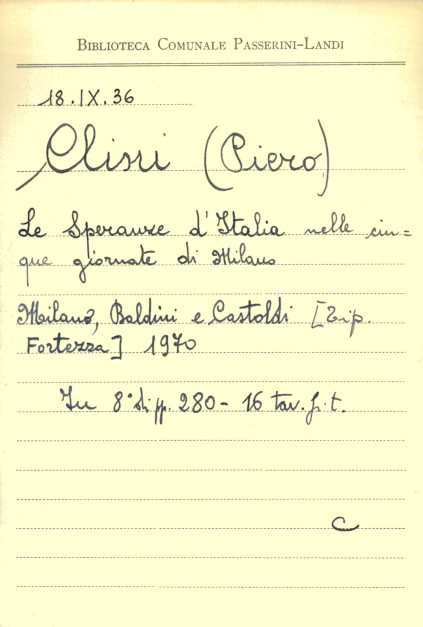 BIBLIOTECA COMUNALE PASSERINI-LANDI
18.IX.36
(Piero)
Le Speranze d'Italia nelle cin=
que giornate di Milano
Milano, Baldini e Castoldi [Tip.
Fortezza] 1970
In 8° di pp. 280 - 16 tav. f. t.
C